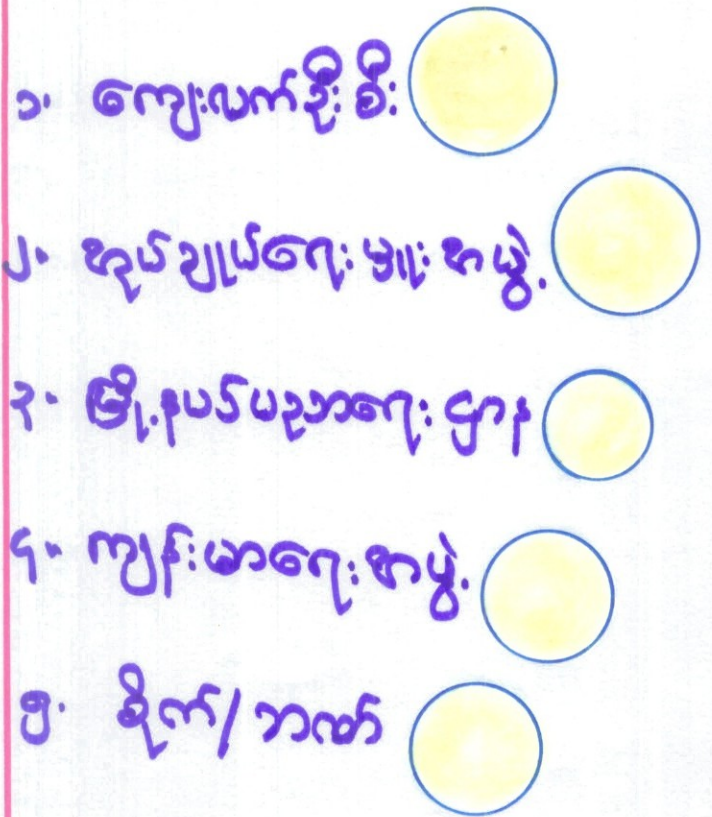 ၁. ကျေးလက်ဦးစီး
၂. အုပ်ချုပ်ရေးမှူးအဖွဲ့
၃. မြို့နယ်ပညာရေးဌာန
၄. ကျန်းမာရေးအဖွဲ့
၅. စိုက်/ဘဏ်